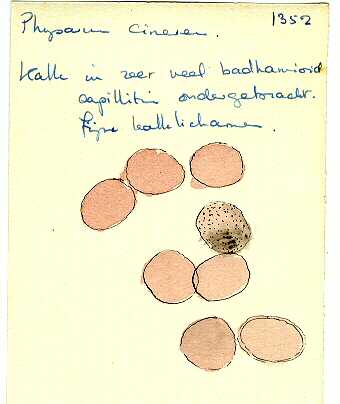 Physarum cinereum. 1352
Kalk in zeer veel badhamioid
capillitium ondergebracht.
Fijne kalklichamen.